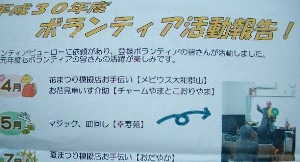 平成30年度
ボランティア活動報告!
ンティアビューローに依頼があり、登録ボランティアの皆さんが活動しました。
元年度もボランティアの皆さんの活躍が楽しみです。
4月
花まつり模擬店お手伝い【メビウス大和郡山】
お花見車いす介助【チャームやまとこおりやま】
5月
マジック、皿回し【幸寿苑】
7月
夏まつり模擬店お手伝い【おだやか】